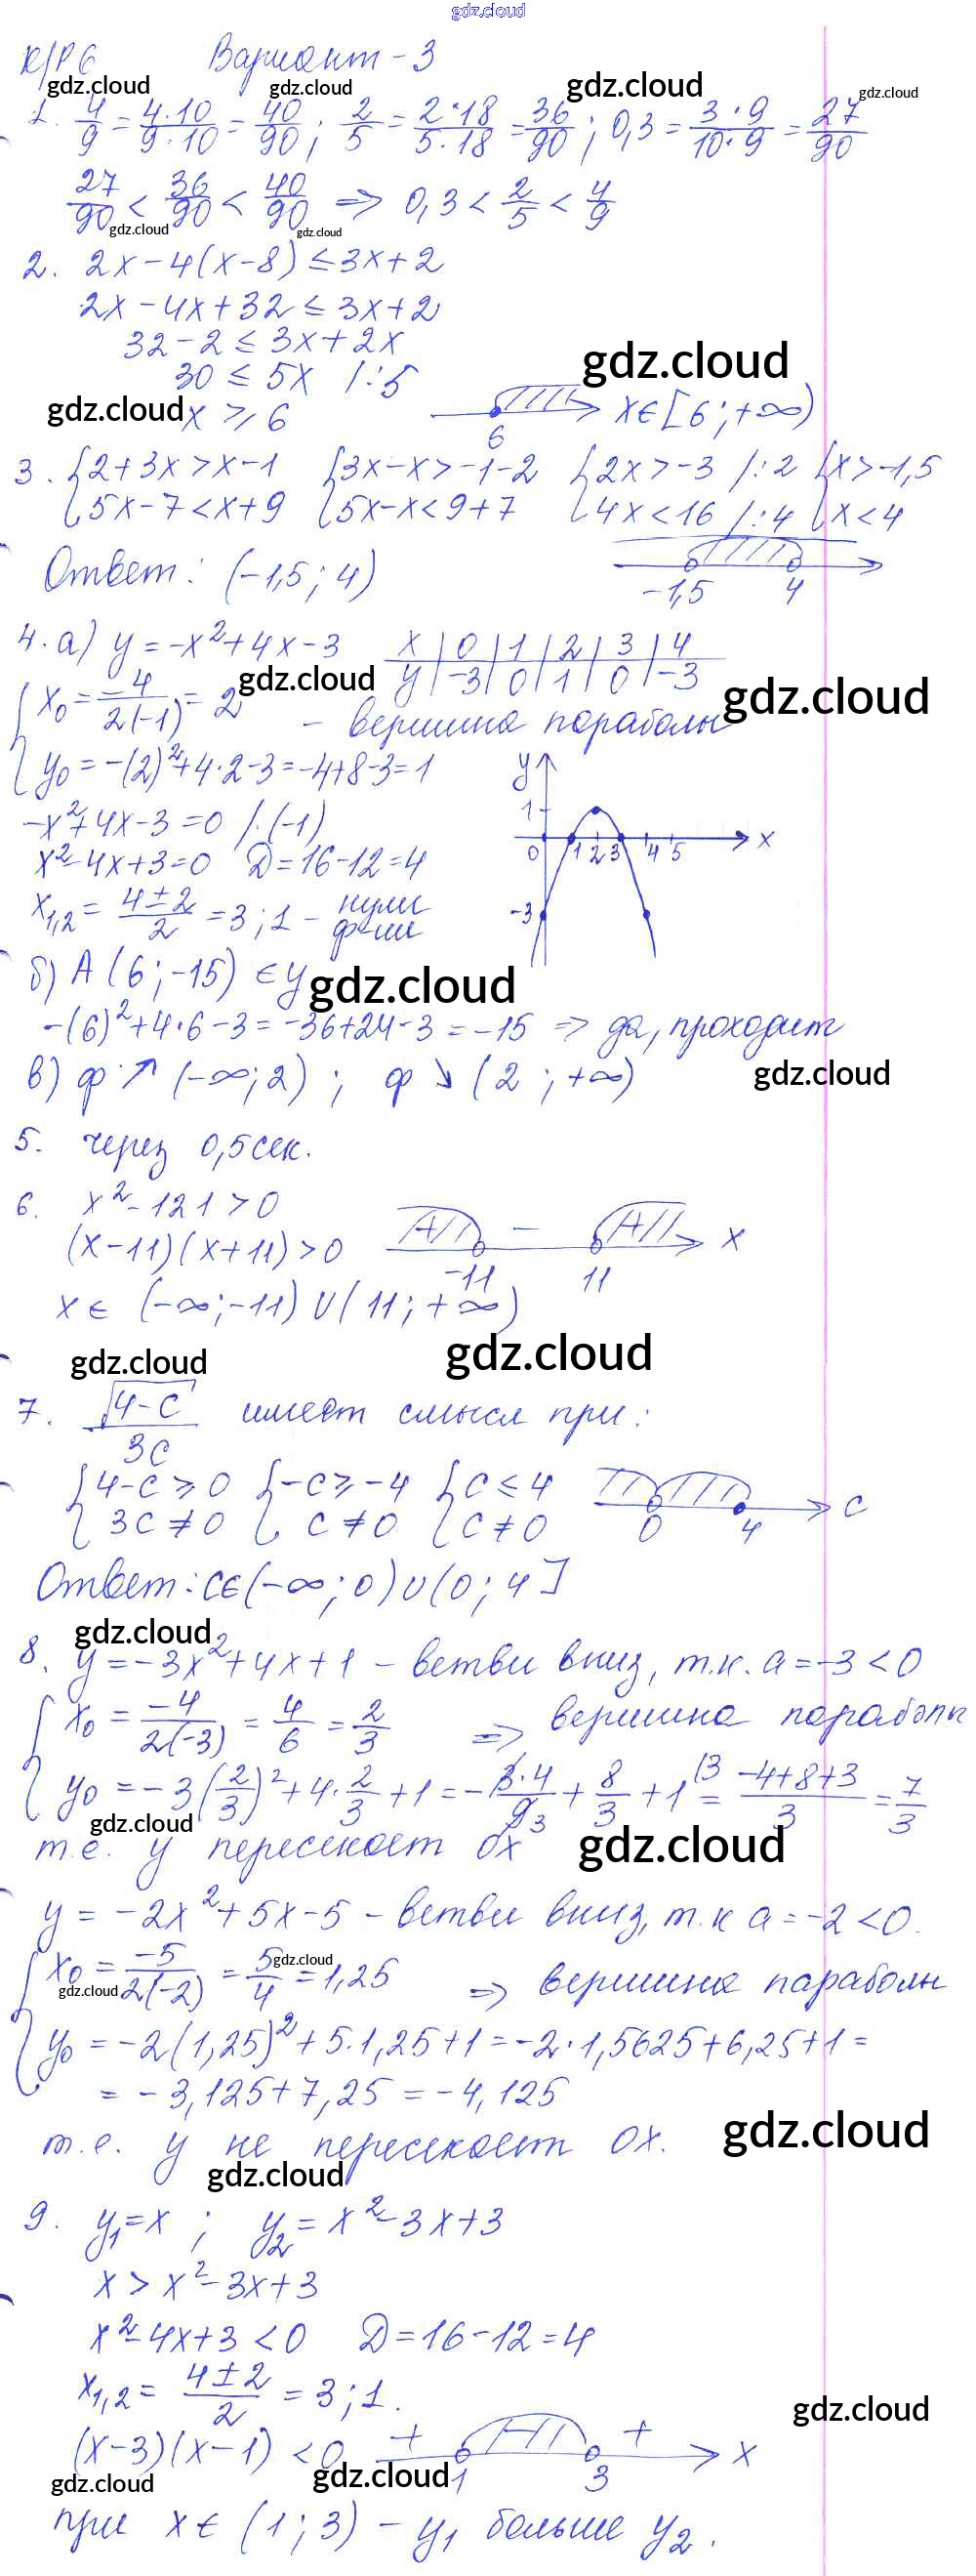 gdz.cloud
К/Р 6 Вариант - 3
gdz.cloud gdz.cloud gdz.cloud gdz.cloud
1. 4/9 = 4·10/9·10 = 40/90 ; 2/5 = 2·18/5·18 = 36/90 ; 0,3 = 3·9/10·9 = 27/90
27/90 < 36/90 < 40/90 => 0,3 < 2/5 < 4/9
gdz.cloud gdz.cloud
2. 2x - 4(x-8) ≤ 3x+2
2x - 4x + 32 ≤ 3x+2
32 - 2 ≤ 3x + 2x
gdz.cloud
30 ≤ 5x /:5
gdz.cloud x ≥ 6 6 x∈[6;+∞)
3. {2+3x > x-1 {3x-x > -1-2 {2x > -3 /:2 {x > -1,5
{5x-7 < x+9 {5x-x < 9+7 {4x < 16 /:4 {x < 4
Ответ: (-1,5; 4) -1,5 4
4. а) y = -x²+4x-3 x | 0 | 1 | 2 | 3 | 4
y | -3 | 0 | 1 | 0 | -3
gdz.cloud gdz.cloud
{x₀ = -4/2(-1) = 2 - вершина параболы
{y₀ = -(2)²+4·2-3 = -4+8-3 = 1
-x²+4x-3 = 0 /·(-1)
x²-4x+3=0 D=16-12=4
x₁,₂ = 4±2/2 = 3;1 - нули ф-ии
y 1 0 1 2 3 4 5 x -3
б) A(6;-15) ∈ y gdz.cloud
-(6)²+4·6-3 = -36+24-3 = -15 => да, проходит
в) ф ↗ (-∞;2) ; ф ↘ (2 ; +∞) gdz.cloud
5. через 0,5 сек.
6. x²-121 > 0
(x-11)(x+11) > 0 + - + -11 11 x
x ∈ (-∞;-11) ∪ (11;+∞)
gdz.cloud gdz.cloud
7. √4-c/3c имеет смысл при:
{4-c ≥ 0 {-c ≥ -4 {c ≤ 4
{3c ≠ 0 {c ≠ 0 {c ≠ 0 0 4 c
Ответ: c∈(-∞;0)∪(0;4]
gdz.cloud
8. y = -3x²+4x+1 - ветви вниз, т.к. a = -3 < 0
{x₀ = -4/2(-3) = 4/6 = 2/3 => вершина параболы
{y₀ = -3(2/3)²+4·2/3+1 = -3·4/9 3+8/3+1 /3 = -4+8+3/3 = 7/3
gdz.cloud gdz.cloud
т.е. y пересекает Ox
y = -2x²+5x-5 - ветви вниз, т.к a = -2 < 0.
gdz.cloud gdz.cloud
{x₀ = -5/2(-2) = 5/4 = 1,25 => вершина параболы
{y₀ = -2(1,25)²+5·1,25+1 = -2·1,5625+6,25+1 =
= -3,125+7,25 = -4,125
gdz.cloud
т.е. y не пересекает Ox.
gdz.cloud
9. y₁=x ; y₂=x²-3x+3
x > x²-3x+3
x²-4x+3 < 0 D=16-12=4
x₁,₂ = 4±2/2 = 3;1.
gdz.cloud
(x-3)(x-1) < 0 + - + 1 3 x
gdz.cloud gdz.cloud
при x∈(1;3) - y₁ больше y₂.